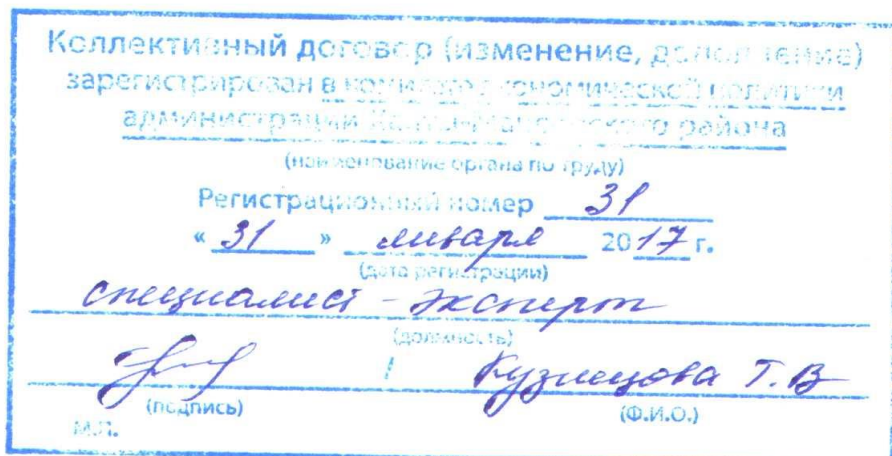 Коллективный договор (изменение, дополнение)
зарегистрирован в комитете экономической политики
администрации Ханты-Мансийского района
(наименование органа по труду)
Регистрационный номер 31
« 31 » января 2017 г.
(дата регистрации)
специалист - эксперт
(должность)
/ Кузнецова Т. В
(подпись) (Ф.И.О.)
М.П.